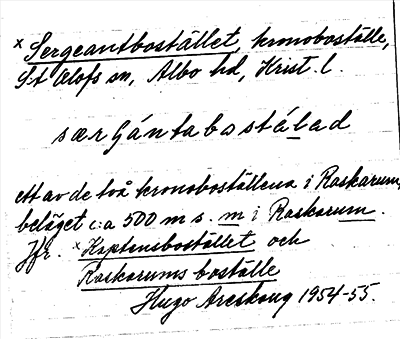 × Sergeantbostället, kronoboställe,
S:t Olofs sn, Albo hd, Krist. l.
særg̀ántabostá̱lad
ett av de två kronoboställena i Raskarum,
beläget c:a 500 m s. m i Raskarum.
Jfr. × Kaptensbostället och
Raskarums boställe
Hugo Areskoug 1954-55.